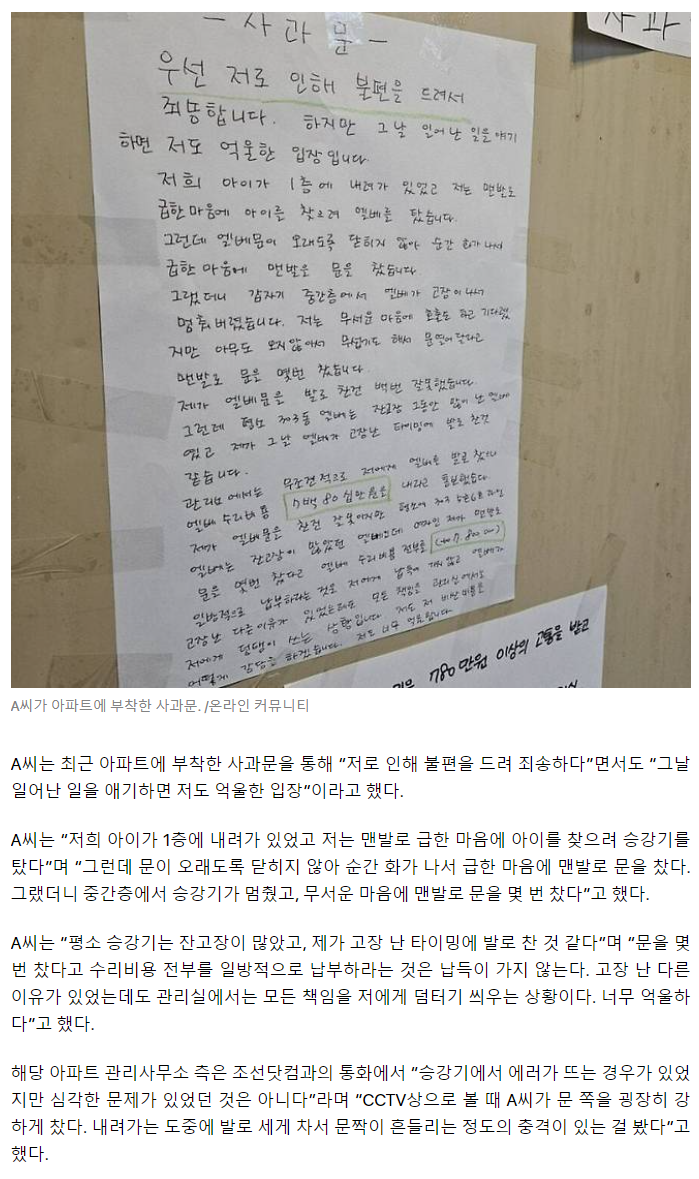 - 사과문 -
사과
우선 저로 인해 불편을 드려서
죄송합니다. 하지만 그날 일어난 일을 얘기
하면 저도 억울한 입장입니다
저희 아이가 1층에 내려가 있었고 저는 맨발로
급한마음에 아이를 찾으려 엘베를 탔습니다.
그런데 엘베문이 오래도록 닫히지 않아 순간 화가나서
급한마음에 맨발로 문을 찼습니다
그랬더니 갑자기 중간층에서 엘베가 고장이나서
멈춰버렸습니다. 저는 무서운 마음에 호출도 하고 기다렸
지만 아무도 오지않아서 무섭기도 해서 문열어달라고
맨발로 문을 몇번 찼습니다.
제가 엘베문을 발로 찬건 백번 잘못했습니다.
그런데 평소 303동 엘베는 잔고장 그동안 많이 난 엘베
였고 제가 그날 엘베가 고장난 타이밍에 발로 찬것
같습니다.
관리소에서는 무조건적으로 저에게 엘베를 발로 찼으니
엘베 수리비용 7백80십만원을 내라고 통보했습니다
제가 엘베문을 찬건 잘못이지만 평소에
엘베는 잔고장이 많았던 엘베인데 제가 맨발로
문을 몇번 찼다고 엘베 수리비용 전부를
일방적으로 납부하라는 것은 저에게 납득이 가지 않고 엘베가
고장난 다른이유가 있었는데도 모든 책임을 관리실에서도
저에게 덤탱이 쓰는 상황입니다. 저도 저 비싼 비용을
어떻게 감당을 하겠습니다. 저도 너무 억울합니다.
780만원 이상의 고통을 받고
A씨가 아파트에 부착한 사과문. /온라인 커뮤니티
A씨는 최근 아파트에 부착한 사과문을 통해 “저로 인해 불편을 드려 죄송하다”면서도 “그날
일어난 일을 얘기하면 저도 억울한 입장”이라고 했다.
A씨는 “저희 아이가 1층에 내려가 있었고 저는 맨발로 급한 마음에 아이를 찾으려 승강기를
탔다”며 “그런데 문이 오래도록 닫히지 않아 순간 화가 나서 급한 마음에 맨발로 문을 찼다.
그랬더니 중간층에서 승강기가 멈췄고, 무서운 마음에 맨발로 문을 몇 번 찼다”고 했다.
A씨는 “평소 승강기는 잔고장이 많았고, 제가 고장 난 타이밍에 발로 찬 것 같다”며 “문을 몇
번 찼다고 수리비용 전부를 일방적으로 납부하라는 것은 납득이 가지 않는다. 고장 난 다른
이유가 있었는데도 관리실에서는 모든 책임을 저에게 덤터기 씌우는 상황이다. 너무 억울하
다”고 했다.
해당 아파트 관리사무소 측은 조선닷컴과의 통화에서 “승강기에서 에러가 뜨는 경우가 있었
지만 심각한 문제가 있었던 것은 아니다”라며 “CCTV상으로 볼 때 A씨가 문 쪽을 굉장히 강
하게 찼다. 내려가는 도중에 발로 세게 차서 문짝이 흔들리는 정도의 충격이 있는 걸 봤다”고
했다.